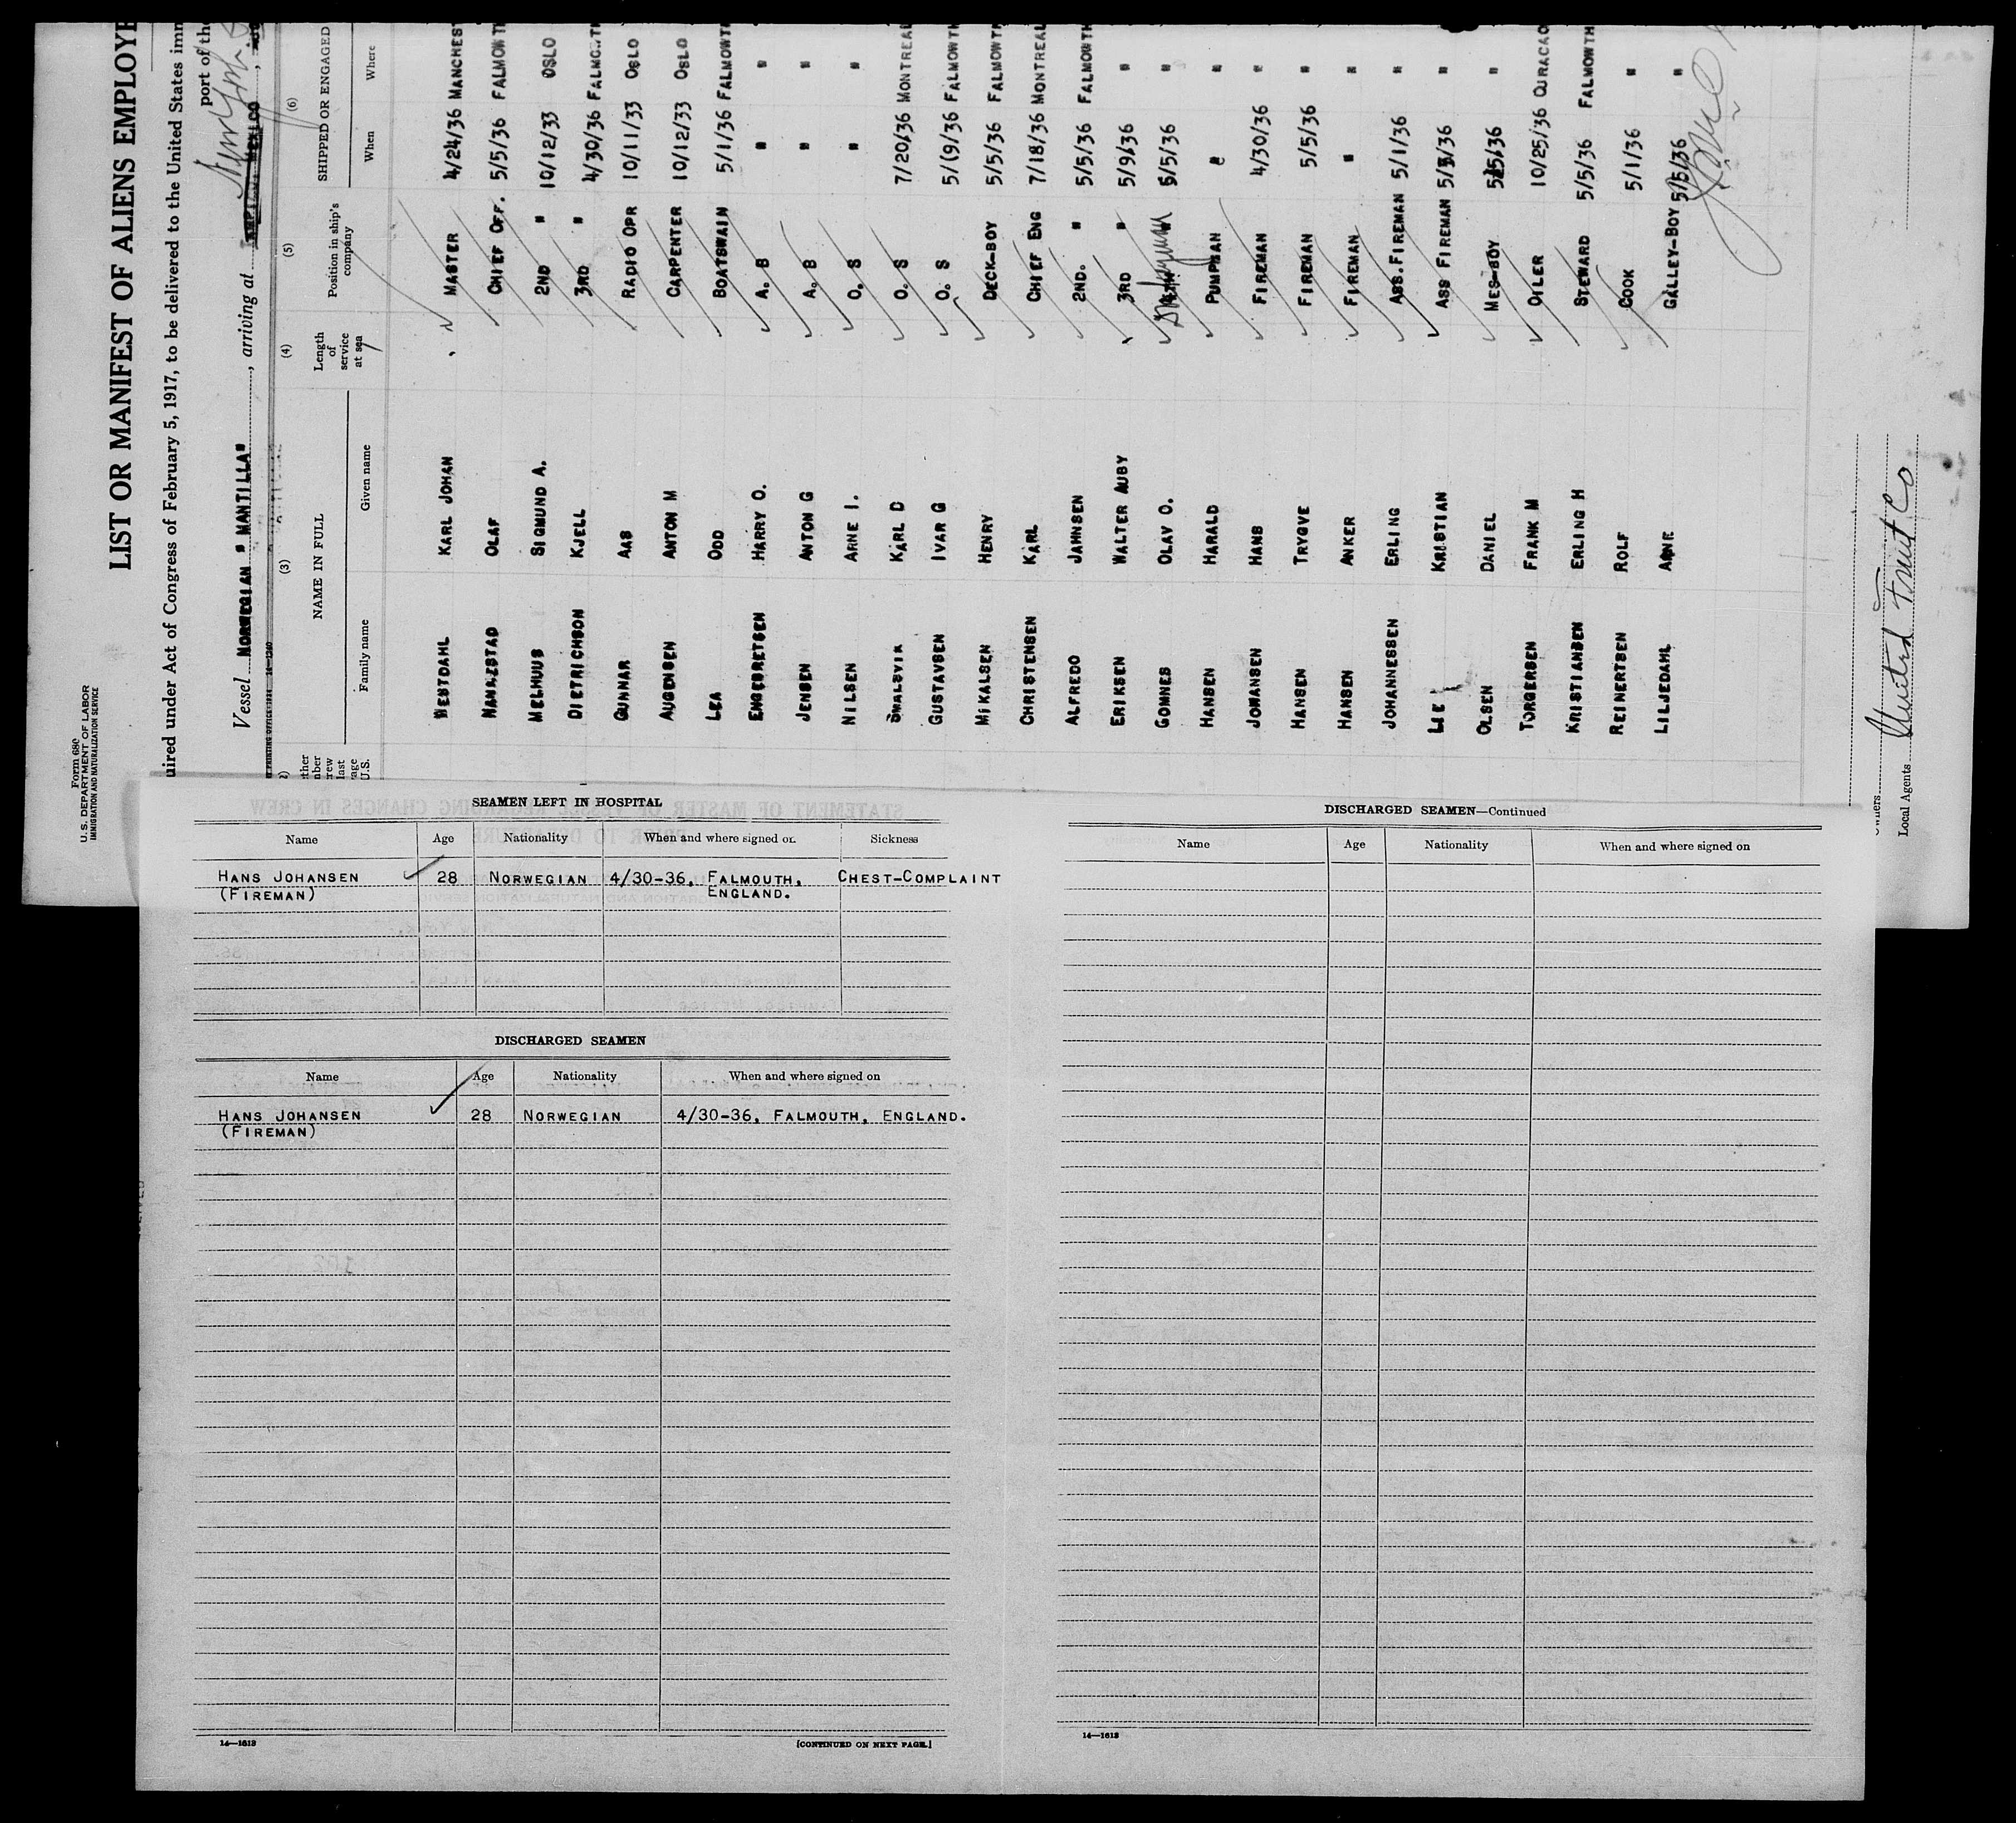 Form 680
U. S. DEPARTMENT OF LABOR
IMMIGRATION AND NATURALIZATION SERVICE
LIST OR MANIFEST OF ALIENS EMPLOYE
uired under Act of Congress of February 5, 1917, to be delivered to the United States imm
port of th
Vessel NORWEGIAN "MANTILLA", arriving at New York
(3) (4) (5) (6)
NAME IN FULL Length of service at sea Position in ship's company SHIPPED OR ENGAGED
Family name Given name When Where
WESTDAHL KARL JOHAN MASTER 4/24/36 MANCHEST
OLAF CHIEF OFF. 5/5/36 FALMOWTH
MELHUS SIGMUND A. 2ND " 10/12/33 OSLO
DIETRICHSON KJELL 3RD " 4/30/36 FALMOWTH
GUNNAR AAS RADIO OPR 10/11/33 OSLO
AUGENSEN ANTON M CARPENTER 10/12/33 OSLO
LEA ODD BOATSWAIN 5/1/36 FALMOWTH
ENGEBRETSEN HARRY O. A. B " "
JENSEN ANTON G A. B " "
NILSEN ARNE I. O. S " "
SMALSVIK KARL D O. S 7/20/36 MONTREAL
GUSTAVSEN IVAR G O. S 5/(9/36 FALMOWTH
MIKALSEN HENRY DECK-BOY 5/5/36 FALMOWTH
CHRISTENSEN KARL CHIEF ENG 7/18/36 MONTREAL
ALFREDO JAHNSEN 2ND. " 5/5/36 FALMOWTH
ERIKSEN WALTER AUBY 3RD " 5/9/36 "
GOMNES OLAV O. 5/5/36 "
HANSEN HARALD PUMPMAN " "
JOHANSEN HANS FIREMAN 4/30/36 "
HANSEN TRYGVE FIREMAN 5/5/36 "
HANSEN ANKER FIREMAN " "
JOHANNESSEN ERLING ASS.FIREMAN 5/1/36 "
LIE KRISTIAN ASS FIREMAN 5/5/36 "
OLSEN DANIEL MES-BOY 5/5/36 "
TORGERSEN FRANK M OILER 10/25/36 CURACAO
KRISTIANSEN ERLING H STEWARD 5/5/36 FALMOWTH
REINERTSEN ROLF COOK 5/1/36 "
LILJEDAHL ARNE GALLEY-BOY 5/5/36 "
Owners
Local Agents United Fruit Co
SEAMEN LEFT IN HOSPITAL
Name Age Nationality When and where signed on Sickness
HANS JOHANSEN 28 NORWEGIAN 4/30-36, FALMOUTH, CHEST-COMPLAINT
(FIREMAN) ENGLAND.
DISCHARGED SEAMEN
Name Age Nationality When and where signed on
HANS JOHANSEN 28 NORWEGIAN 4/30-36, FALMOUTH, ENGLAND.
(FIREMAN)
14—1613 [CONTINUED ON NEXT PAGE.]
DISCHARGED SEAMEN—Continued
Name Age Nationality When and where signed on
14—1613